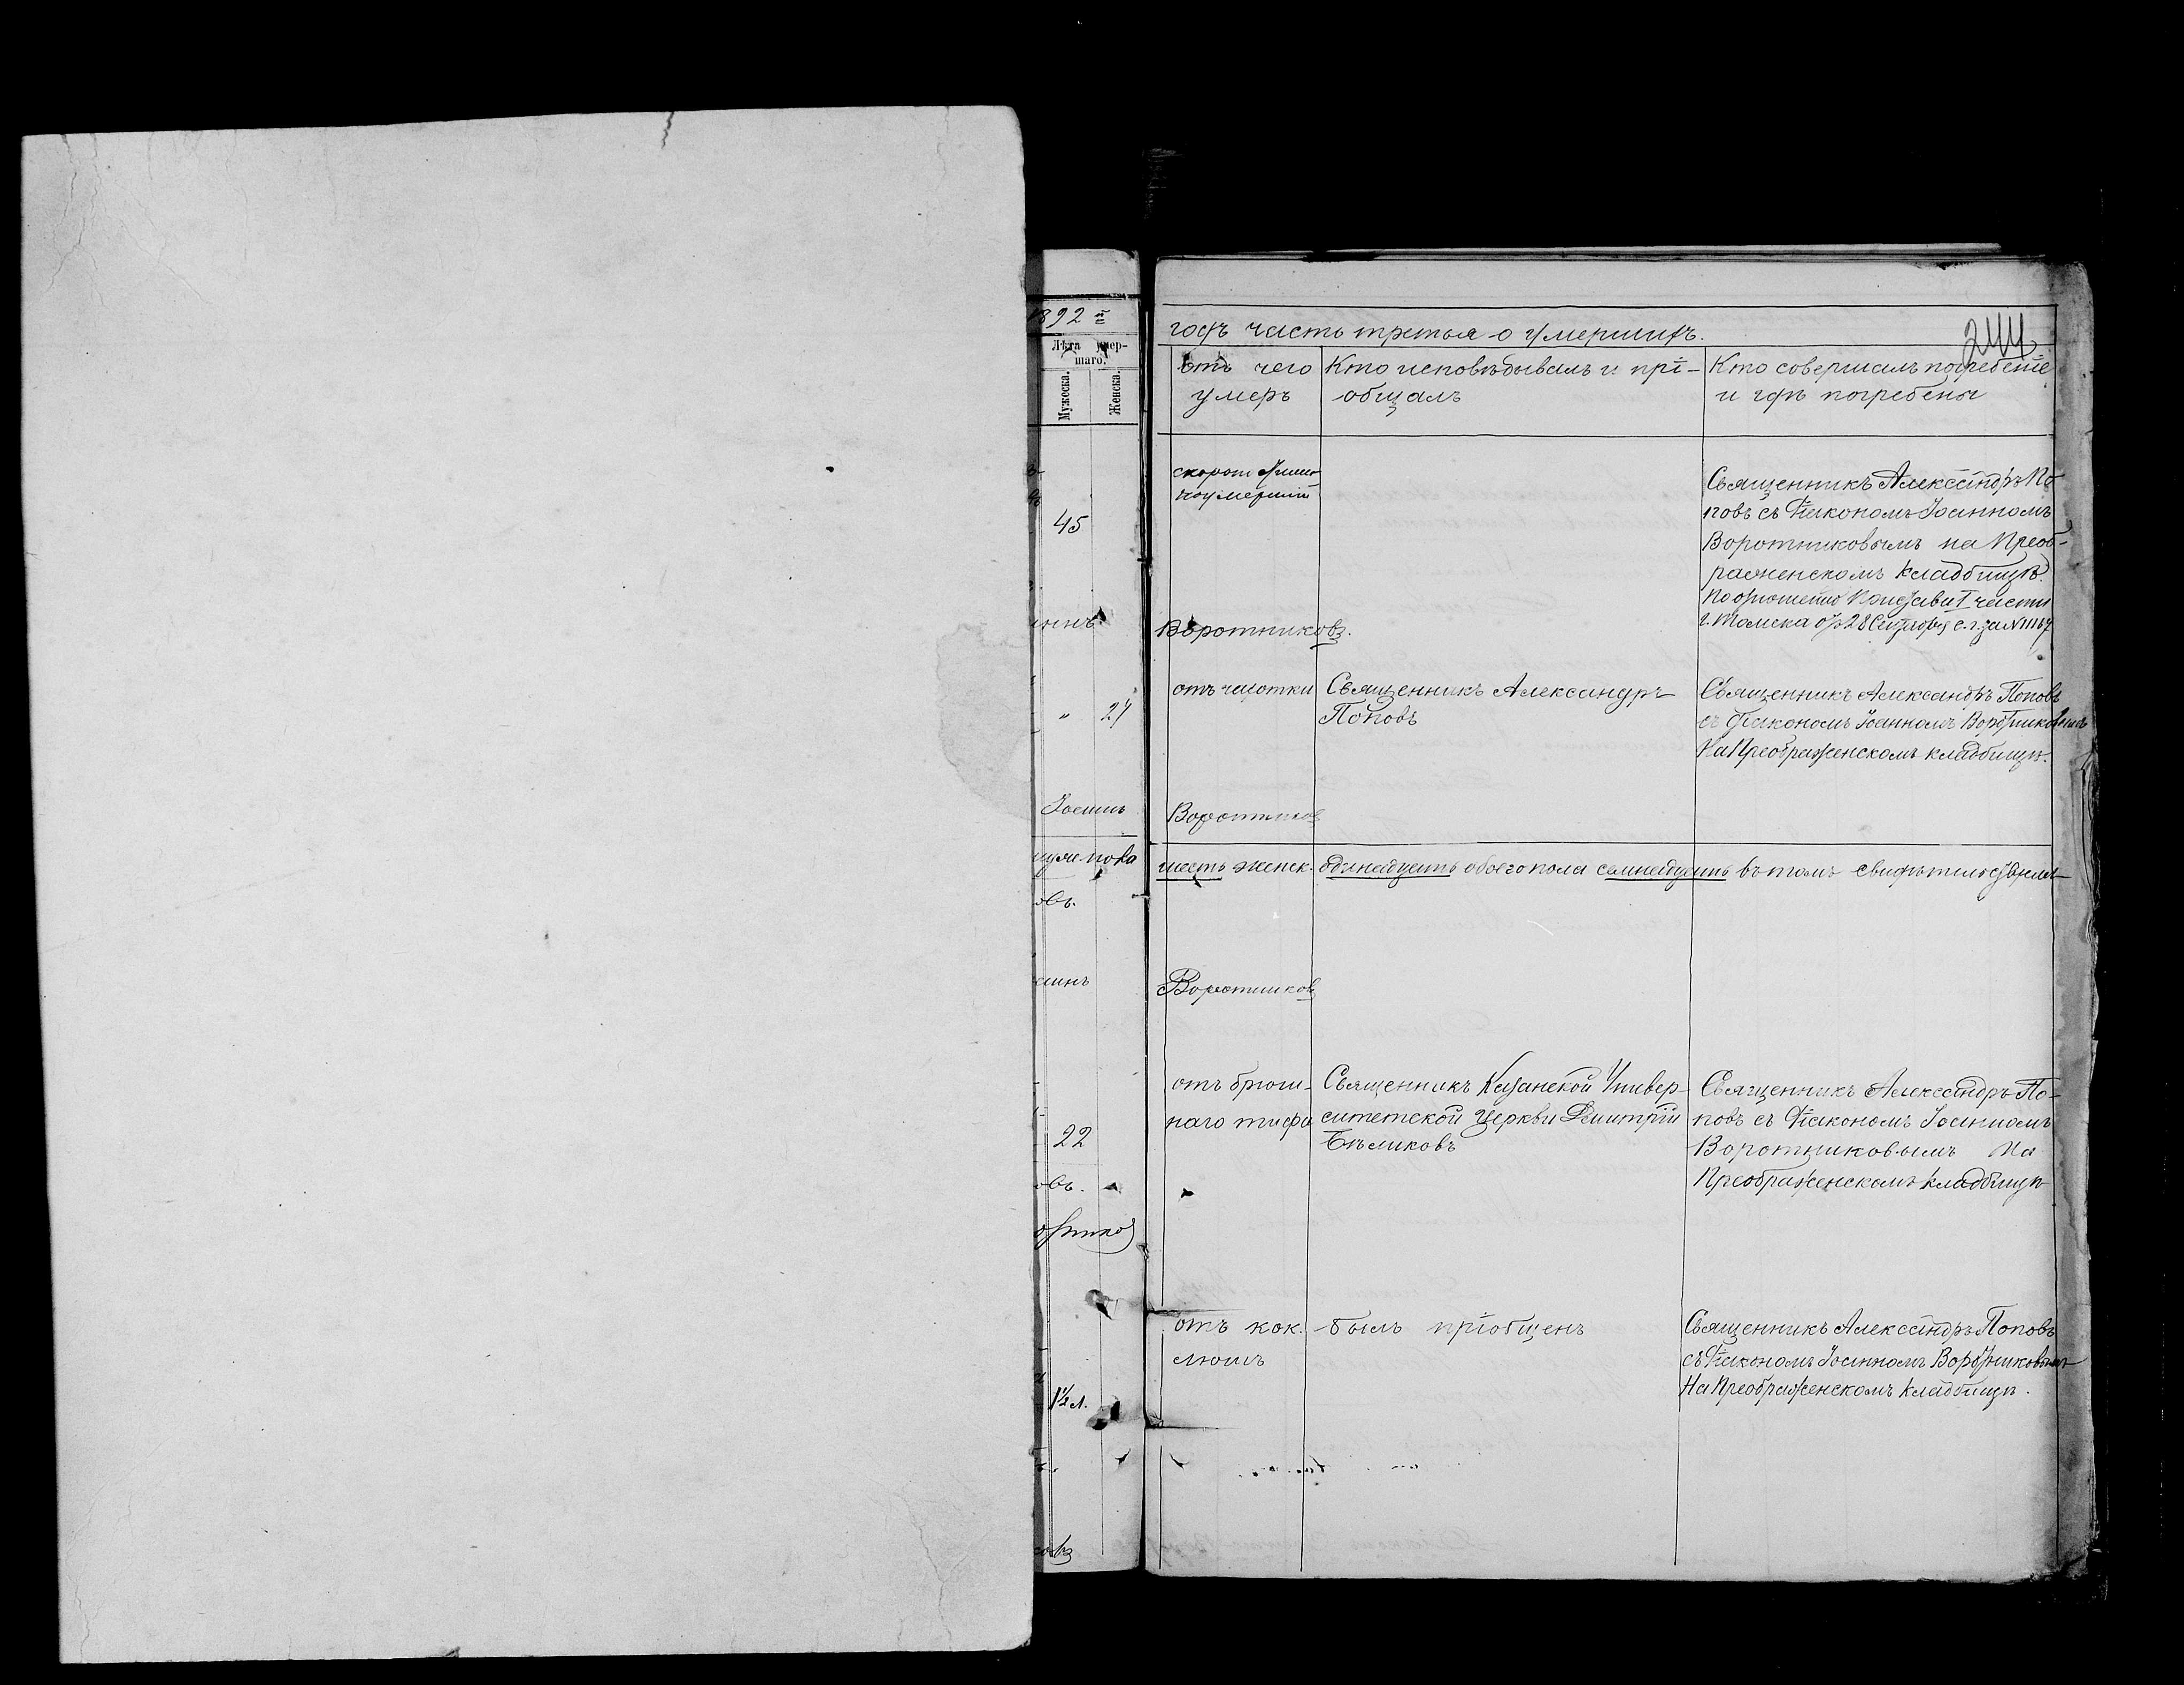 1892 й
годъ часть третья о умершихъ.
244
Лѣта умер-
шаго.
Мужеска.
Женска.
Отъ чего
умеръ
Кто исповѣдывалъ и прі-
общалъ
Кто совершалъ погребеніе
и гдѣ погребены
45
скоропостижно
умершій
Священникъ Александръ По-
повъ съ Діакономъ Іоанномъ
Воротниковымъ на Преоб-
раженскомъ кладбищѣ.
По отношенію Пристава I части
г. Томска отъ 28 Сентября с. г. за №
Воротниковъ.
" 27
отъ чахотки
Священникъ Александръ
Поповъ
Священникъ Александръ Поповъ
съ Діакономъ Іоанномъ Воротниковымъ
На Преображенскомъ кладбищѣ.
Іоаннъ Воротников
муже. пола шесть женск. одинадцать обоего пола семнадцать въ томъ свидѣтельствуемъ
овъ.
аннъ Воротников
22
отъ брюш-
наго тифа
Священникъ Казанской Универ-
ситетской Церкви Димитрій
Бѣликовъ
Священникъ Александръ По-
повъ съ Діакономъ Іоанномъ
Воротниковымъ На
Преображенскомъ кладбищѣ
овъ.
1½ л.
отъ кок-
люшъ
былъ пріобщенъ
Священникъ Александръ Поповъ
съ Діакономъ Іоанномъ Воротниковымъ
На Преображенскомъ кладбищѣ.